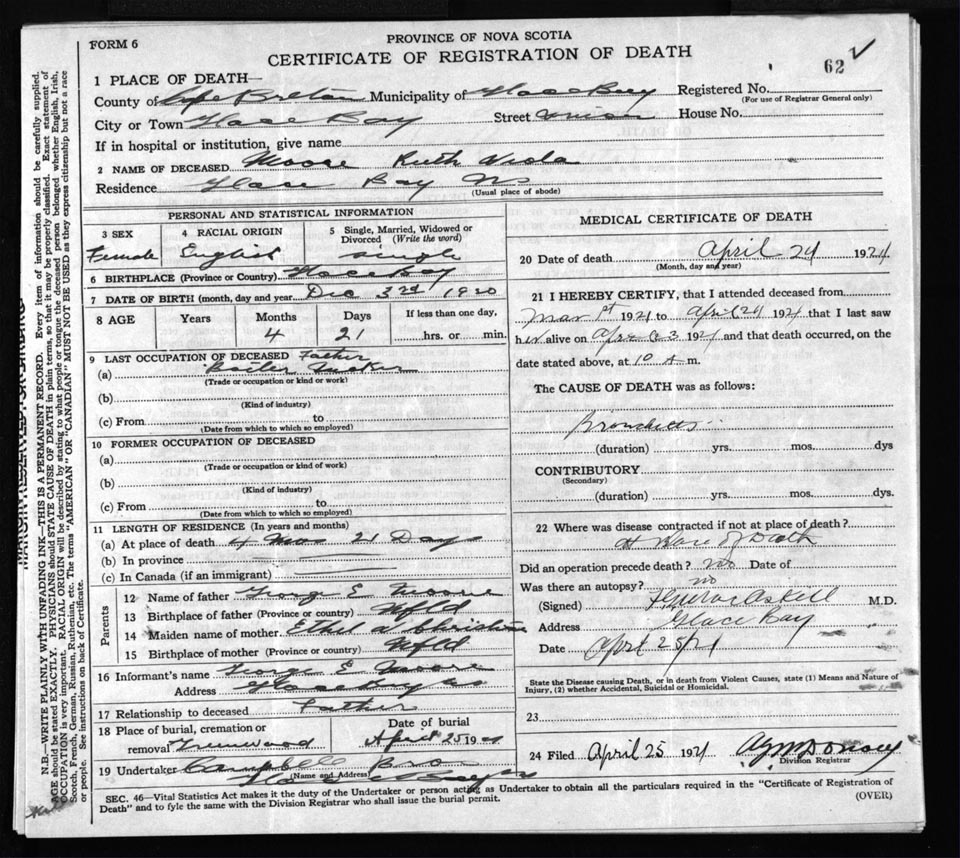 FORM 6
PROVINCE OF NOVA SCOTIA
CERTIFICATE OF REGISTRATION OF DEATH
62
1 PLACE OF DEATH—
County of Cape Breton Municipality of Glace Bay Registered No.
(For use of Registrar General only)
City or Town Glace Bay Street Union House No.
If in hospital or institution, give name
2 NAME OF DECEASED Moore Ruth Viola
Residence Glace Bay NS
(Usual place of abode)
PERSONAL AND STATISTICAL INFORMATION
3 SEX 4 RACIAL ORIGIN 5 Single, Married, Widowed or Divorced (Write the word)
Female English Single
6 BIRTHPLACE (Province or Country) Glace Bay
7 DATE OF BIRTH (month, day and year) Dec 3rd 1920
8 AGE Years Months Days If less than one day,
4 21 hrs. or min.
9 LAST OCCUPATION OF DECEASED Father
(a) Boiler Maker
(Trade or occupation or kind or work)
(b)
(Kind of industry)
(c) From to
(Date from which to which so employed)
10 FORMER OCCUPATION OF DECEASED
(a)
(Trade or occupation or kind of work)
(b)
(Kind of industry)
(c) From to
(Date from which to which so employed)
11 LENGTH OF RESIDENCE (In years and months)
(a) At place of death 4 Mos 21 Days
(b) In province
(c) In Canada (if an immigrant)
Parents
12 Name of father George E Moore
13 Birthplace of father (Province or country) Nfld
14 Maiden name of mother Ethel
15 Birthplace of mother (Province or country) Nfld
16 Informant's name George E Moore
Address Glace Bay NS
17 Relationship to deceased Father
18 Place of burial, cremation or removal Greenwood
Date of burial April 25 1921
19 Undertaker Campbell Bro
(Name and Address) Glace Bay NS
MEDICAL CERTIFICATE OF DEATH
20 Date of death April 24 1921
(Month, day and year)
21 I HEREBY CERTIFY, that I attended deceased from
Mar 1st 1921 to April 24 1921 that I last saw
her alive on April 23 1921 and that death occurred, on the
date stated above, at 10 A m.
The CAUSE OF DEATH was as follows:
Bronchitis
(duration) yrs. mos. dys
CONTRIBUTORY
(Secondary)
(duration) yrs. mos. dys.
22 Where was disease contracted if not at place of death?
At Place of Death
Did an operation precede death? no Date of
Was there an autopsy? no
(Signed) M.D.
Address Glace Bay
Date April 25/21
State the Disease causing Death, or in death from Violent Causes, state (1) Means and Nature of
Injury, (2) whether Accidental, Suicidal or Homicidal.
23
24 Filed April 25 1921
Division Registrar
SEC. 46—Vital Statistics Act makes it the duty of the Undertaker or person acting as Undertaker to obtain all the particulars required in the "Certificate of Registration of
Death" and to fyle the same with the Division Registrar who shall issue the burial permit.
(OVER)
MARGIN RESERVED FOR BINDING
N.B.—WRITE PLAINLY WITH UNFADING INK—THIS IS A PERMANENT RECORD. Every item of information should be carefully supplied.
AGE should be stated EXACTLY. PHYSICIANS should STATE CAUSE OF DEATH in plain terms, so that it may be properly classified. Exact statement of
OCCUPATION is very important. RACIAL ORIGIN will be described by stating to what people or tongue the deceased person belonged whether English, Irish,
Scotch, French, German, Russian, Ruthenian, etc. The terms "AMERICAN" OR "CANADIAN" MUST NOT BE USED as they express citizenship but not a race
or people. See instructions on back of Certificate.